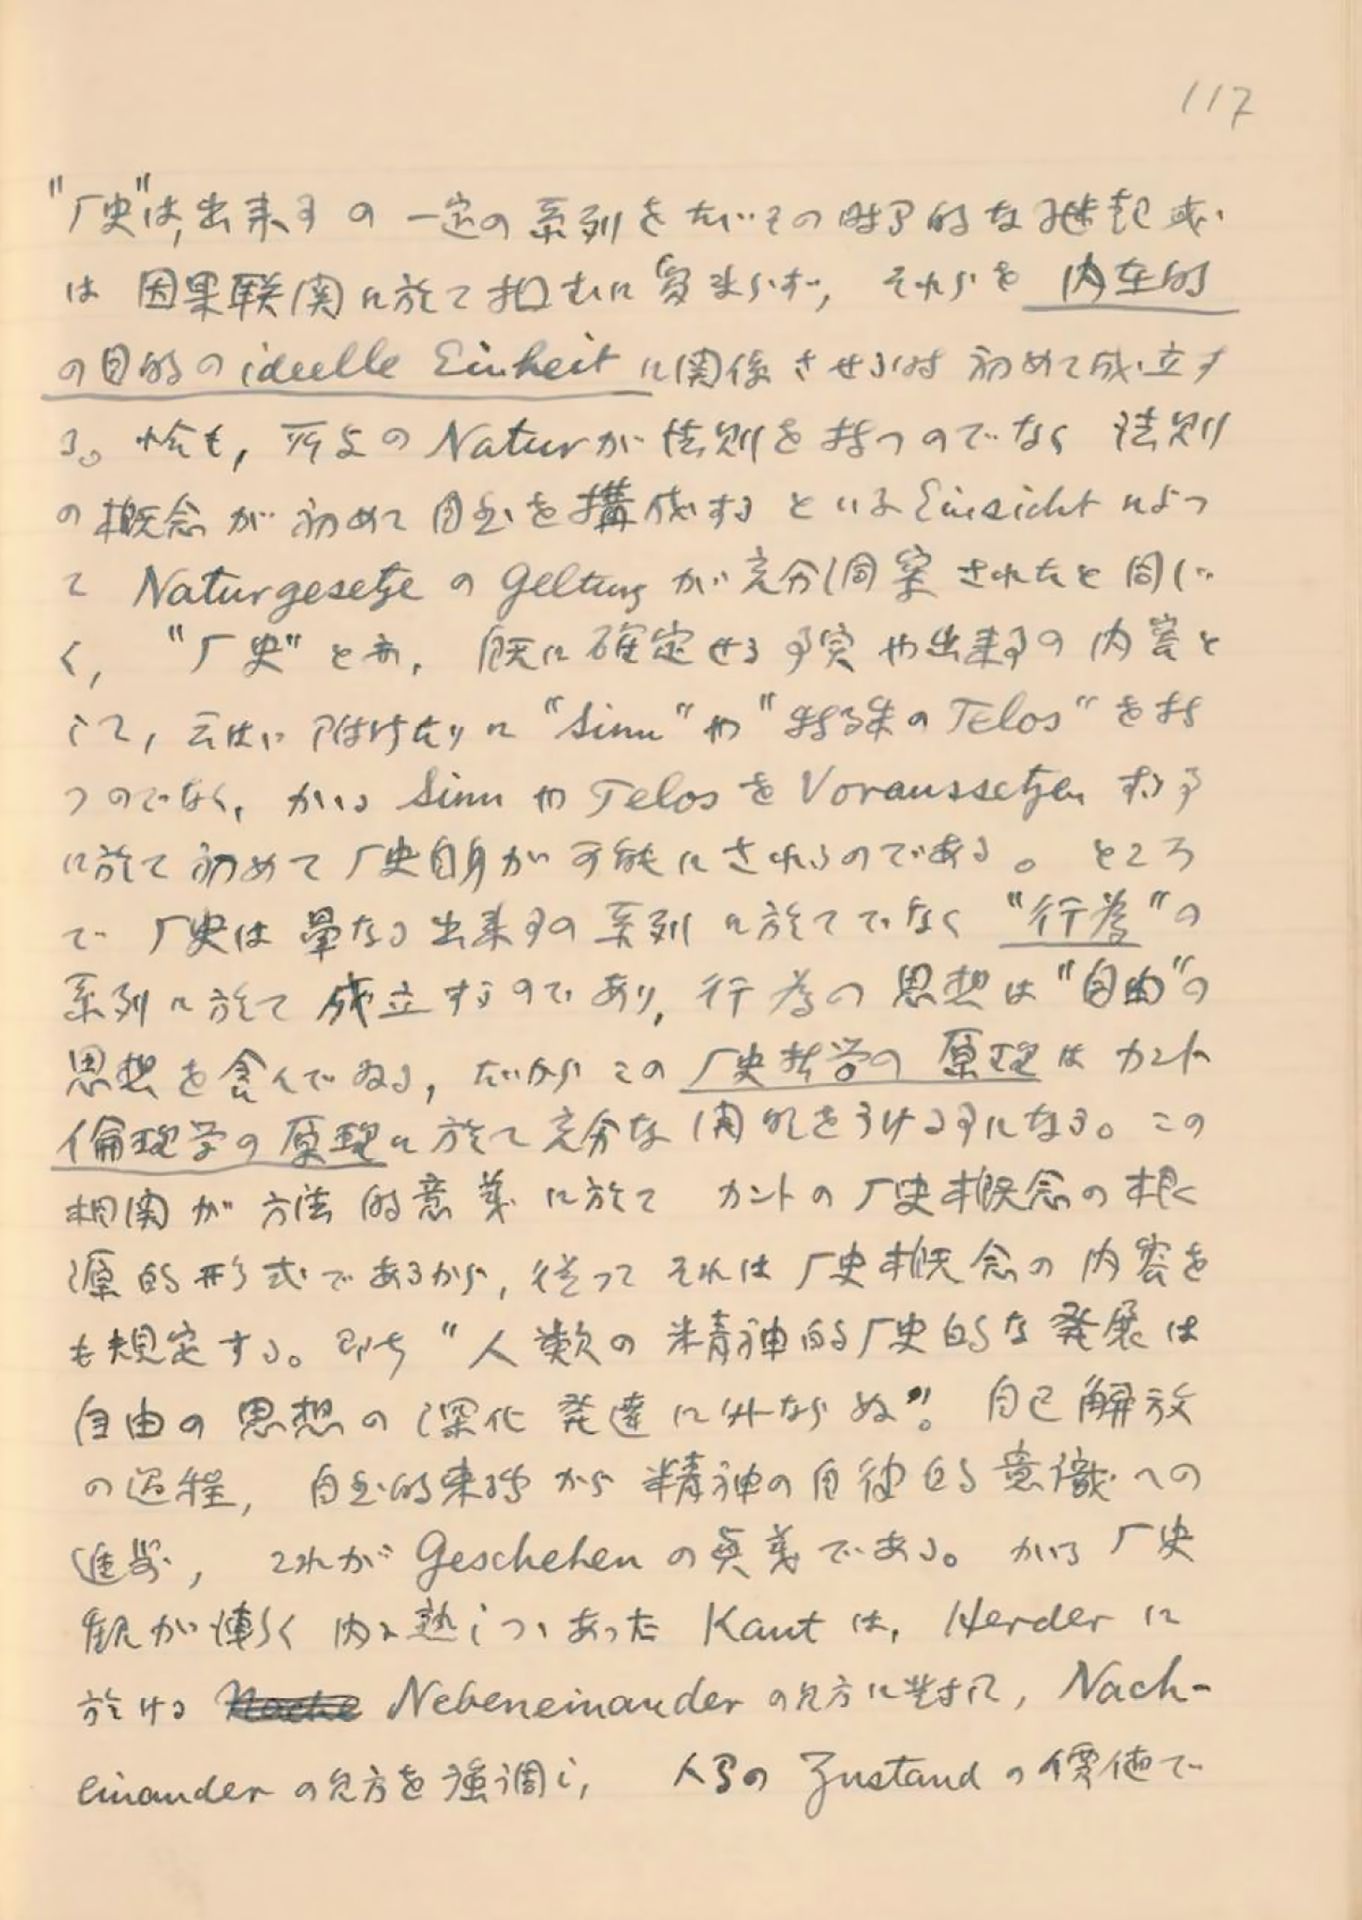 117
"厂史"は,出来事の一定の系列をたゞその時間的な継起或
は因果联関に於て掴むに留まらず, それらを内在的
の目的の ideelle Einheit に関係させるは初めて成立す
る。恰も, 所与の Natur が法則を持つのでなく 法則
の概念が初めて自然を構成するといふ Einsicht によつ
て Naturgesetze の Geltung が充分洞察されたと同じ
く, "厂史"とあ, 既に確定せる事実や出来事の内容と
して, 云はゞ附けたりに "Sinn" や "特殊の Telos" を持
つのでなく, かゝる Sinn や Telos を Voraussetzen する事
に於て初めて厂史自身が可能にされるのである。ところ
で 厂史は単なる出来事の系列に於てでなく "行為"の
系列に於て成立するのであり, 行為の思想は"自由"の
思想を含んでゐる, だからこの厂史哲学の原理はカント
倫理学の原理に於て充分な開明をうける事になる。この
相関が方法的意義に於て カントの厂史概念の根
源的形式であるから, 従つてそれは厂史概念の内容を
も規定する。即ち "人類の精神的厂史的な発展は
自由の思想の深化発達に外ならぬ"。自己解放
の過程, 自然的束縛から精神の自律的意識への
進歩, これが Geschehen の真義である。かゝる厂史
観が漸く内に熟しつゝあつた Kant は, Herder に
於ける Nebeneinander の見方に対して, Nach-
einander の見方を強調し, 人間の Zustand の価値で